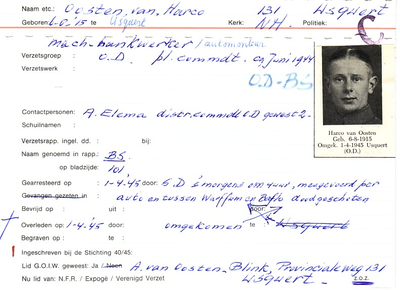 Naam etc: Oosten, van, Harco 131 Usquert
Geboren: 6-8-'15 te Usquert Kerk: N.H. Politiek:
mach-bankwerker/automonteur
Verzetsgroep : O.D. pl. commdt. Juni 1944
Verzetswerk : O.D-BS
Contactpersonen: A. Elema distr. commdt O.D gewest 2-
Schuilnaam :
Harco van Oosten
Geb. 6-8-1915
Omgek. 1-4-1945 Usquert
(O.D.)
Verzetsrapp. ingel. dd. : bij:
Naam genoemd in rapp.: BS
op bladzijde: 101
Gearresteerd op : 1-4-'45 door: S.D 's morgens om 4 uur, meegevoerd per
Gevangen gezeten in : auto en tussen Warffum en Baflo doodgeschoten
Bevrijd op : uit : door:
Overleden op : 1-4-'45 door: omgekomen te Usquert
Begraven op : te :
Ingeschreven bij de Stichting 40/45:
Lid G.O.I.W. geweest: Ja / Neen A. van Oosten-Blink, Provincialeweg 131
Nu lid van: N.F.R. / Expogé / Verenigd Verzet Usquert. 202